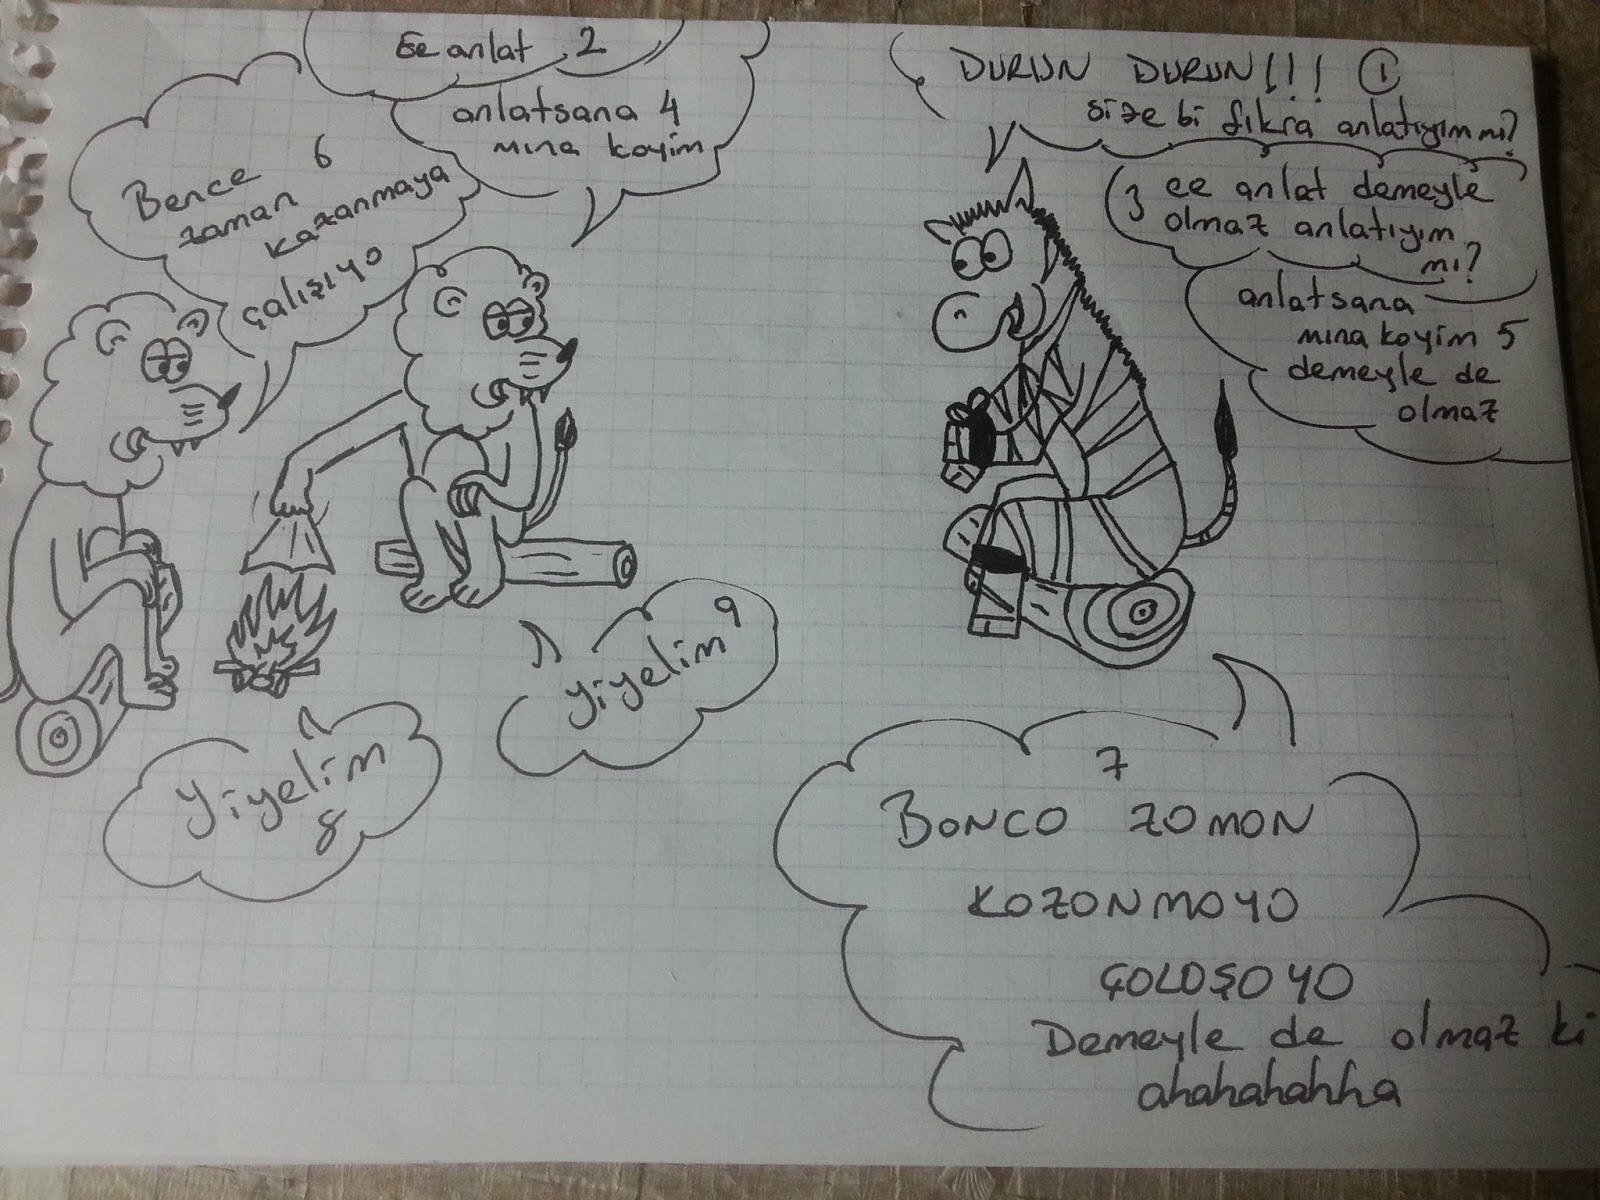 DURUN DURUN!!! 1
size bi fıkra anlatıyım mı?
Ee anlat 2
3 ee anlat demeyle
olmaz anlatıyım
mı?
anlatsana 4
mına koyim
anlatsana
mına koyim 5
demeyle de
olmaz
Bence 6
zaman
kazanmaya
çalışıyo
7
BONCO ZOMON
KOZONMOYO
ÇOLOŞOYO
Demeyle de olmaz ki
ahahahahha
yiyelim
8
yiyelim 9